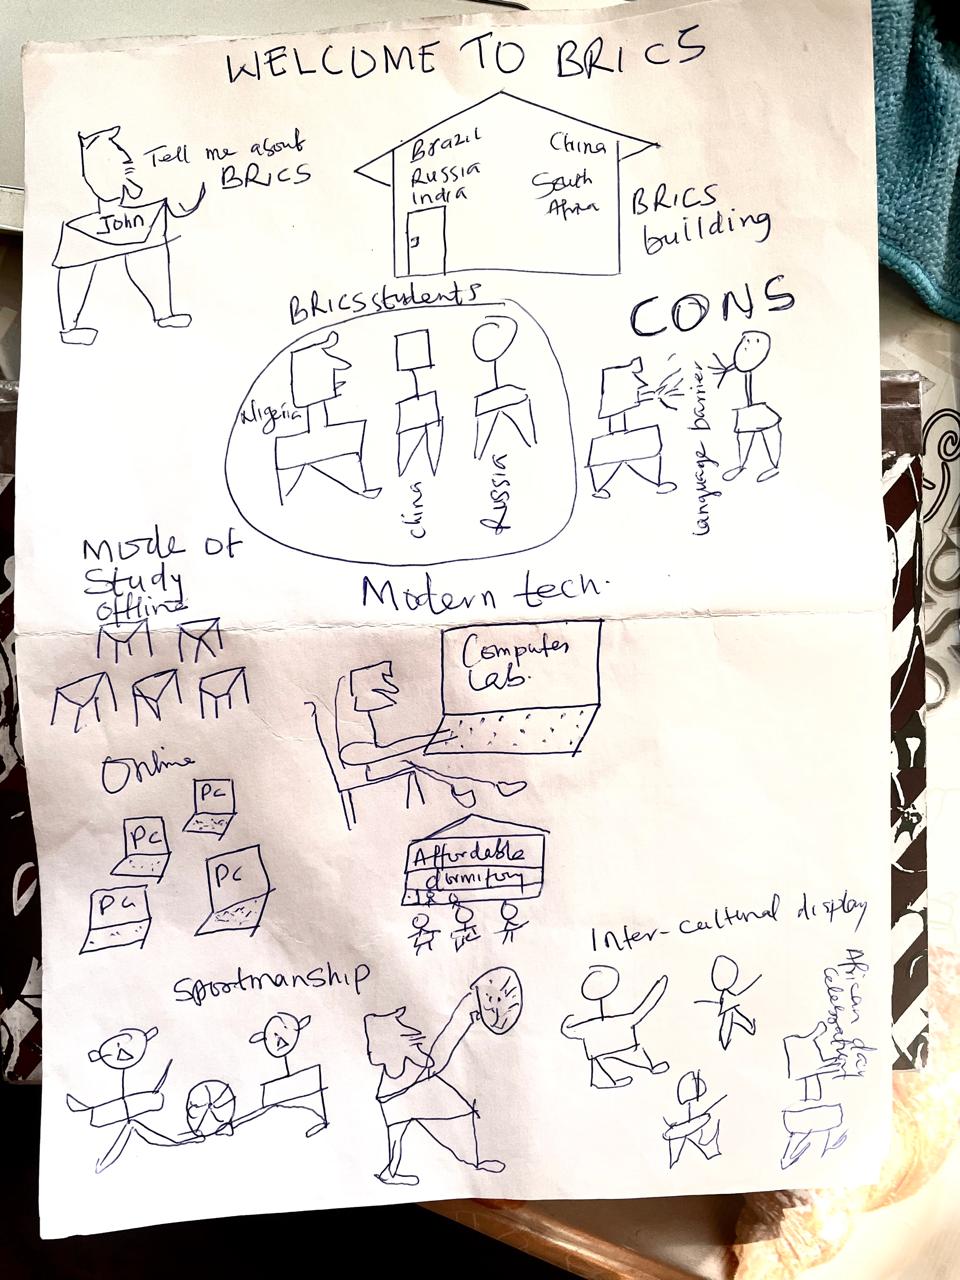 WELCOME TO BRICS
Tell me about
BRICS
John
Brazil
Russia
India
China
South
Africa
BRICS
building
BRICS students
Nigeria
China
Russia
CONS
Language barrier
Mode of
Study
offline
Modern tech.
Computer
Lab.
Online
PC
PC
PC
PC
Affordable
dormitory
Inter-cultural display
African day
celebration
Sportmanship